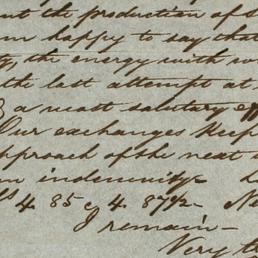 out the production of
am happy to say that
the energy with
the last attempt at
& a most salutary
Our exchanges keep
approach of the next
an indemnity.
4.85 @ 4.87½.
I remain
Very